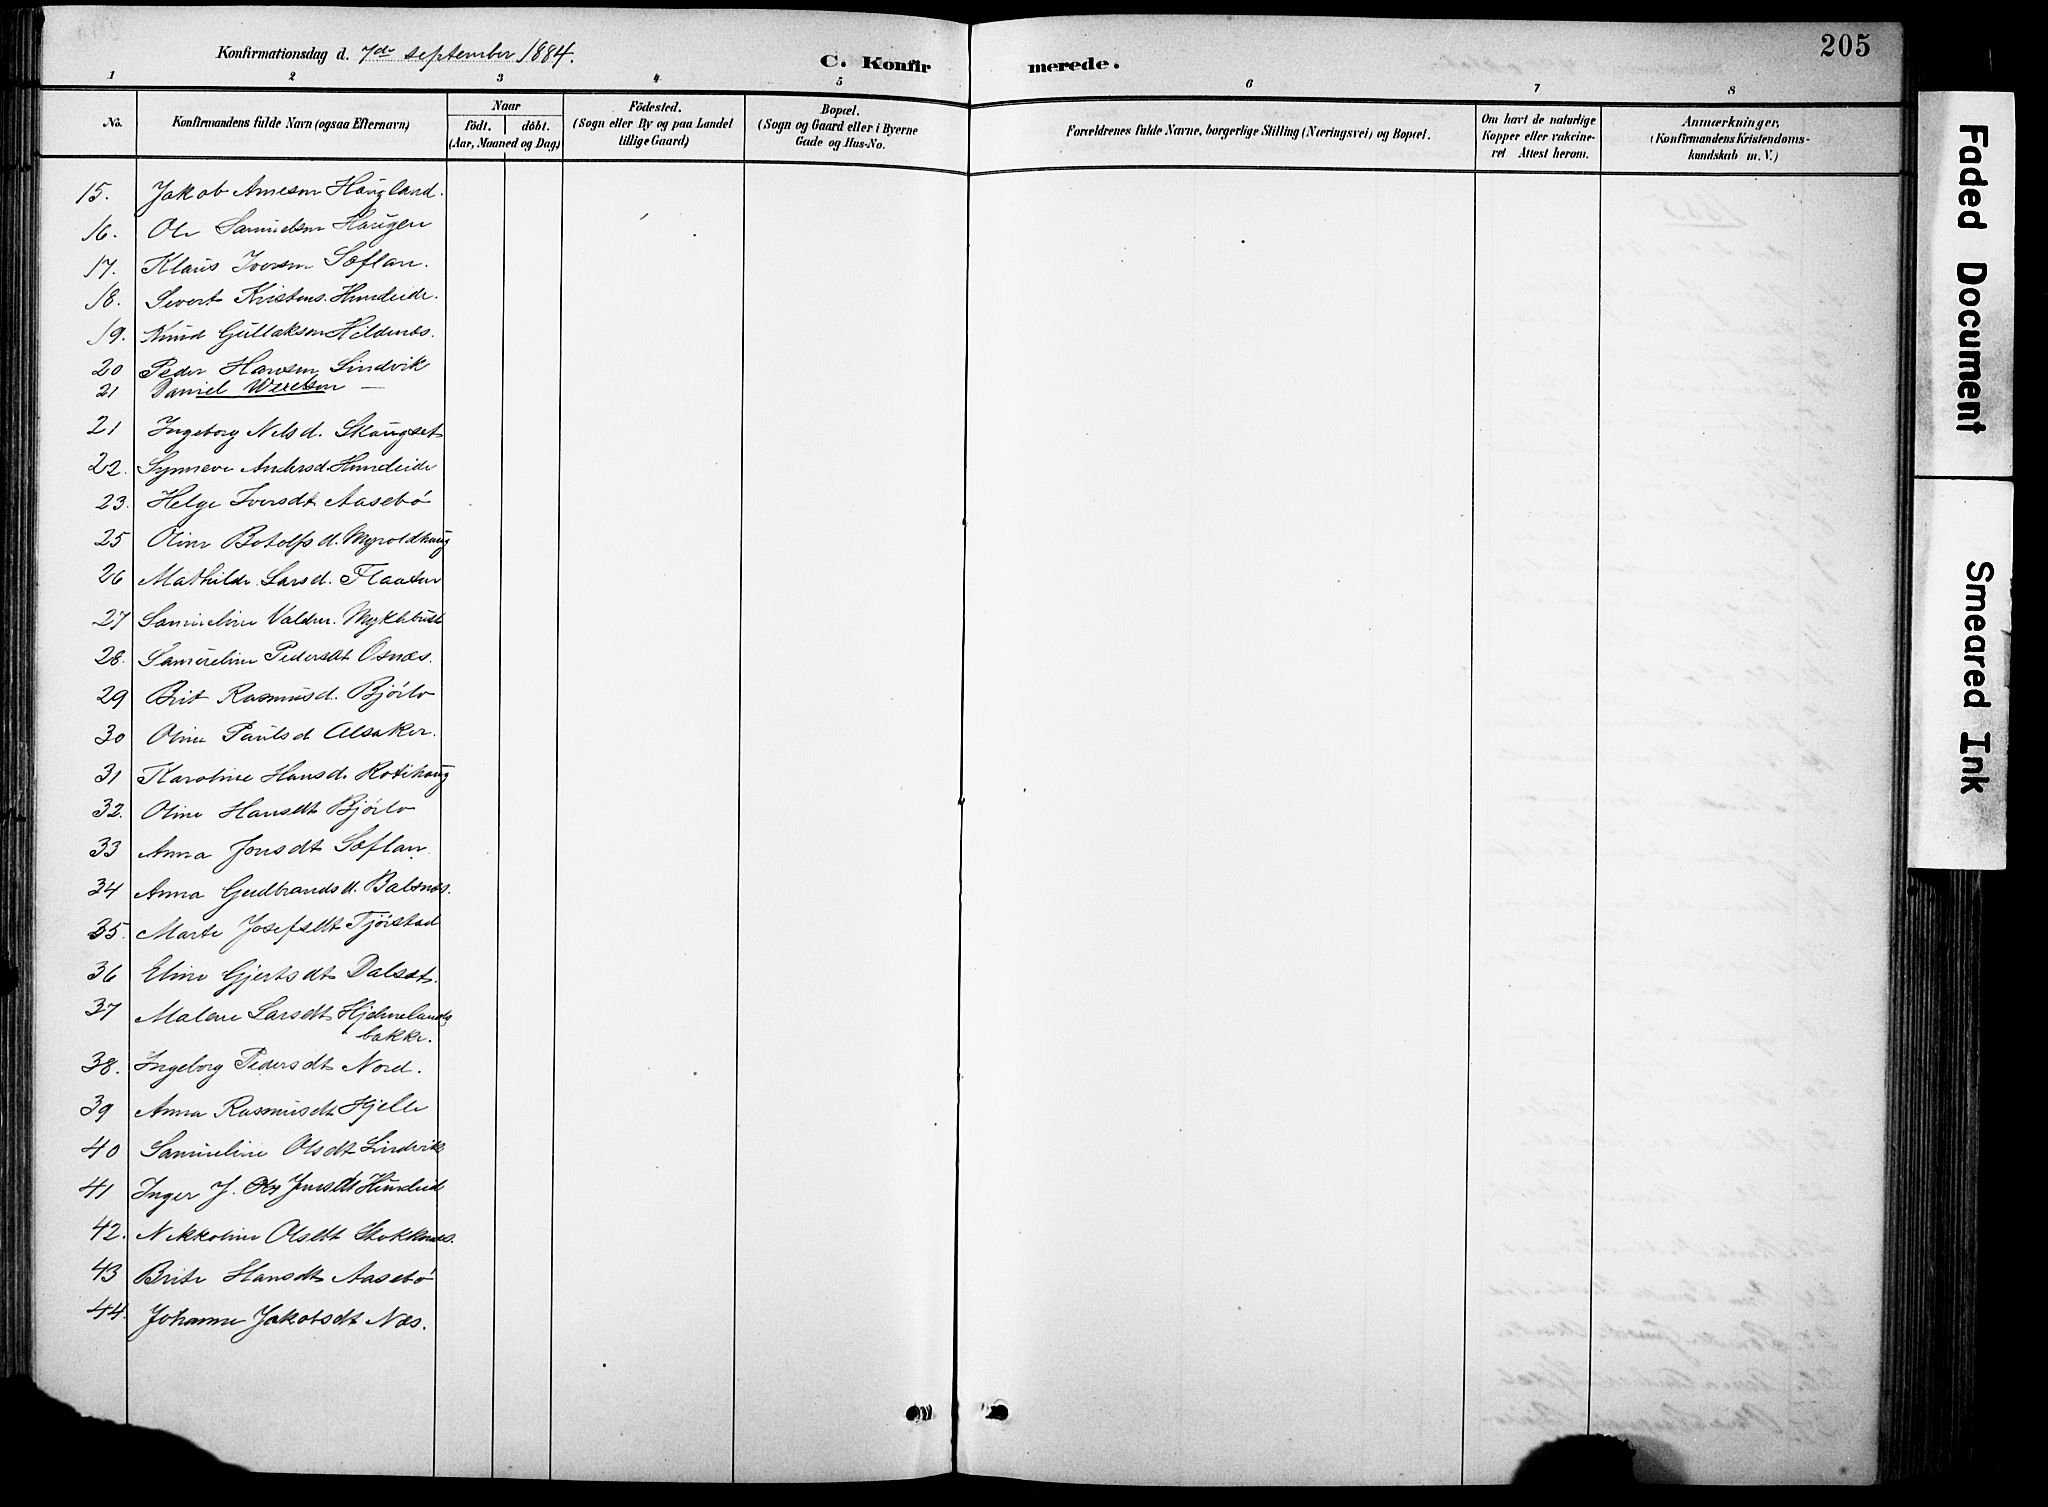 Konfirmationsdag d. 7de september 1884.
C. Konfirmerede.
205
1 2 3 4 5 6 7 8
No.
Konfirmandens fulde Navn (ogsaa Efternavn)
Naar
födt. döbt.
(Aar, Maaned og Dag)
Födested.
(Sogn eller By og paa Landet
tillige Gaard)
Bopæl.
(Sogn og Gaard eller i Byerne
Gade og Hus-No.
Forældrenes fulde Navne, borgerlige Stilling (Næringsvei) og Bopæl.
Om havt de naturlige
Kopper eller vakcine-
ret Attest herom.
Anmærkninger,
(Konfirmandens Kristendoms-
kundskab m. V.)
15. Jakob Arnesen Haugland.
16. Ole Samuelsen Haugen
17. Klaus Iversen Sæflan.
18. Sivert Kristens. Hundeide.
19. Knud Gullaksen Hildenes.
20 Peder Hansen Lindvik
21 Daniel —
21 Ingeborg Nelsd. Skaugset
22. Synneve Andersd. Hundeide
23. Helge Iversdt Aasebö
25 Oline Botolfsd. Myroldhaug
26 Mathilde Larsd. Flaaten
27 Samueline Valdr. Myklebust
28. Samueline Pedersdt Osnæs.
29 Brit Rasmusd. Bjørlo
30 Oline Paulsd Alsaker.
31 Karoline Hansd. Rotihaug
32. Oline Hansdt Bjørlo
33 Anna Jonsdt Sæflan.
34 Anna Gudbrandsd. Balsnes.
35. Marte Josefsdt Tjørstad
36 Eline Gjertsdt Dalsæt.
37 Malene Larsdt Hjelmelands
bakke.
38. Ingeborg Pedersdt Nord.
39 Anna Rasmusdt Hjelle
40 Samueline Olsdt Lindvik
41 Inger J. Jonsdt Hundeid
42. Nikkoline Olsdt Stokknes.
43 Brite Hansdt Aasebö
44. Johanne Jakobsdt Næs.
Faded Document
Smeared Ink